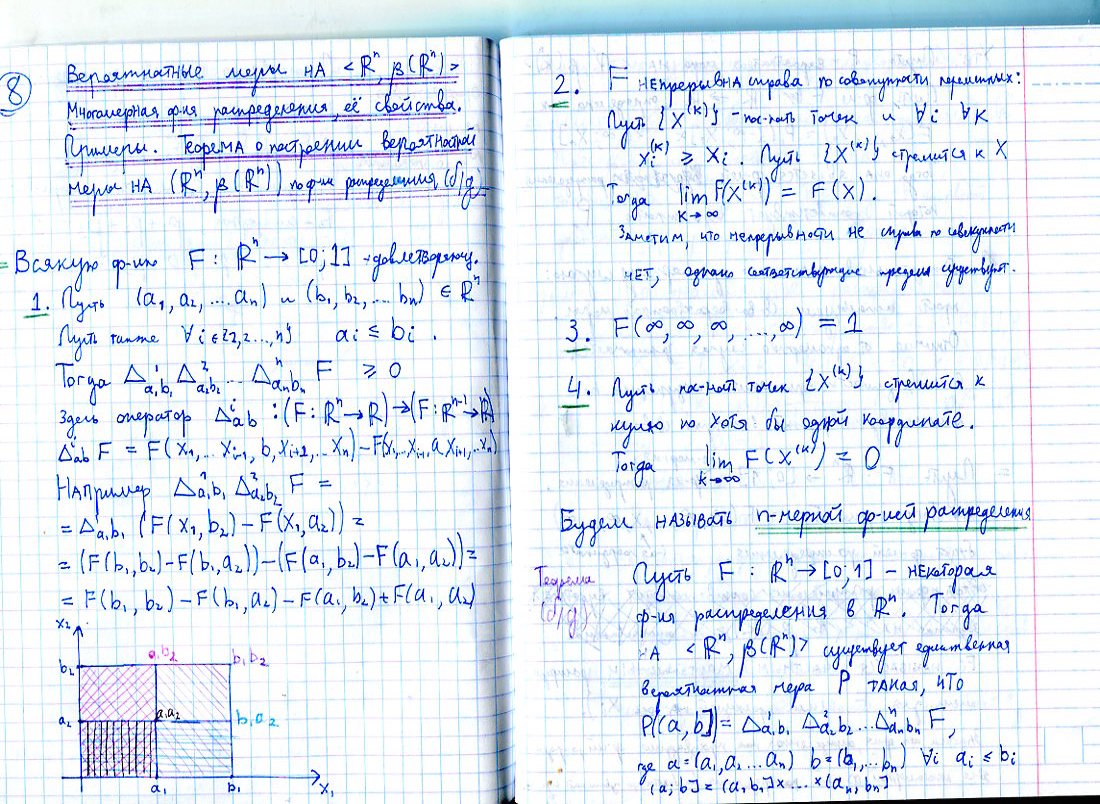 8
Вероятнатные меры НА < ℝⁿ, β(ℝⁿ) >
Многомерная ф-ия распределения, её свойства.
Примеры. Теорема о построении вероятностной
меры НА (ℝⁿ, β(ℝⁿ)) по ф-ии распределения (б/д)
Всякую ф-ию F : ℝⁿ → [0;1] - удовлетворяющ.
1. Пусть (a₁, a₂, ... aₙ) и (b₁, b₂, ... bₙ) ∈ ℝⁿ
Пусть также ∀i ∈ {1,2...,n} aᵢ ≤ bᵢ .
Тогда Δ¹a₁b₁ Δ²a₂b₂ ... Δⁿaₙbₙ F ≥ 0
Здесь оператор Δⁱab : (F : ℝⁿ → ℝ) → (F : ℝⁿ⁻¹ → ℝ)
Δⁱab F = F(x₁, ... xᵢ₋₁, b, xᵢ₊₁, ... xₙ) – F(x₁, ... xᵢ₋₁, a, xᵢ₊₁, ... xₙ)
Например Δ¹a₁b₁ Δ²a₂b₂ F =
= Δ¹a₁b₁ (F(x₁, b₂) – F(x₁, a₂)) =
= (F(b₁, b₂) – F(b₁, a₂)) – (F(a₁, b₂) – F(a₁, a₂)) =
= F(b₁, b₂) – F(b₁, a₂) – F(a₁, b₂) + F(a₁, a₂)
x₂
b₂ a₁b₂ b₁b₂
a₂ a₁a₂ b₁a₂
a₁ b₁ x₁
2. F непрерывна справа по совокупности переменных:
Пусть {X⁽ᵏ⁾} - пос-ность точек и ∀i ∀k
xᵢ⁽ᵏ⁾ ≥ xᵢ . Пусть {X⁽ᵏ⁾} стремится к X
Тогда lim F(X⁽ᵏ⁾) = F(X).
k → ∞
Заметим, что непрерывности не справа по совокупности
нет, однако соответствующие пределы существуют.
3. F(∞, ∞, ∞, ..., ∞) = 1
4. Пусть пос-ность точек {X⁽ᵏ⁾} стремится к
нулю по хотя бы одной координате.
Тогда lim F(X⁽ᵏ⁾) = 0
k→∞
Будем называть n-мерной ф-ией распределения
Теорема (б/д)
Пусть F : ℝⁿ → [0;1] – некоторая
ф-ия распределения в ℝⁿ. Тогда
на < ℝⁿ, β(ℝⁿ) > существует единственная
вероятнатная мера P такая, что
P((a, b]) = Δ¹a₁b₁ Δ²a₂b₂ ... Δⁿaₙbₙ F,
где a = (a₁, a₂ ... aₙ) b = (b₁, ... bₙ) ∀i aᵢ ≤ bᵢ
(a; b] = (a₁ b₁] × ... × (aₙ, bₙ]